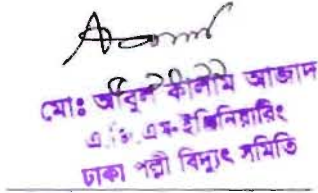 মোঃ আবুল কালাম আজাদ
এ.জি.এম-ইঞ্জিনিয়ারিং
ঢাকা পল্লী বিদ্যুৎ সমিতি